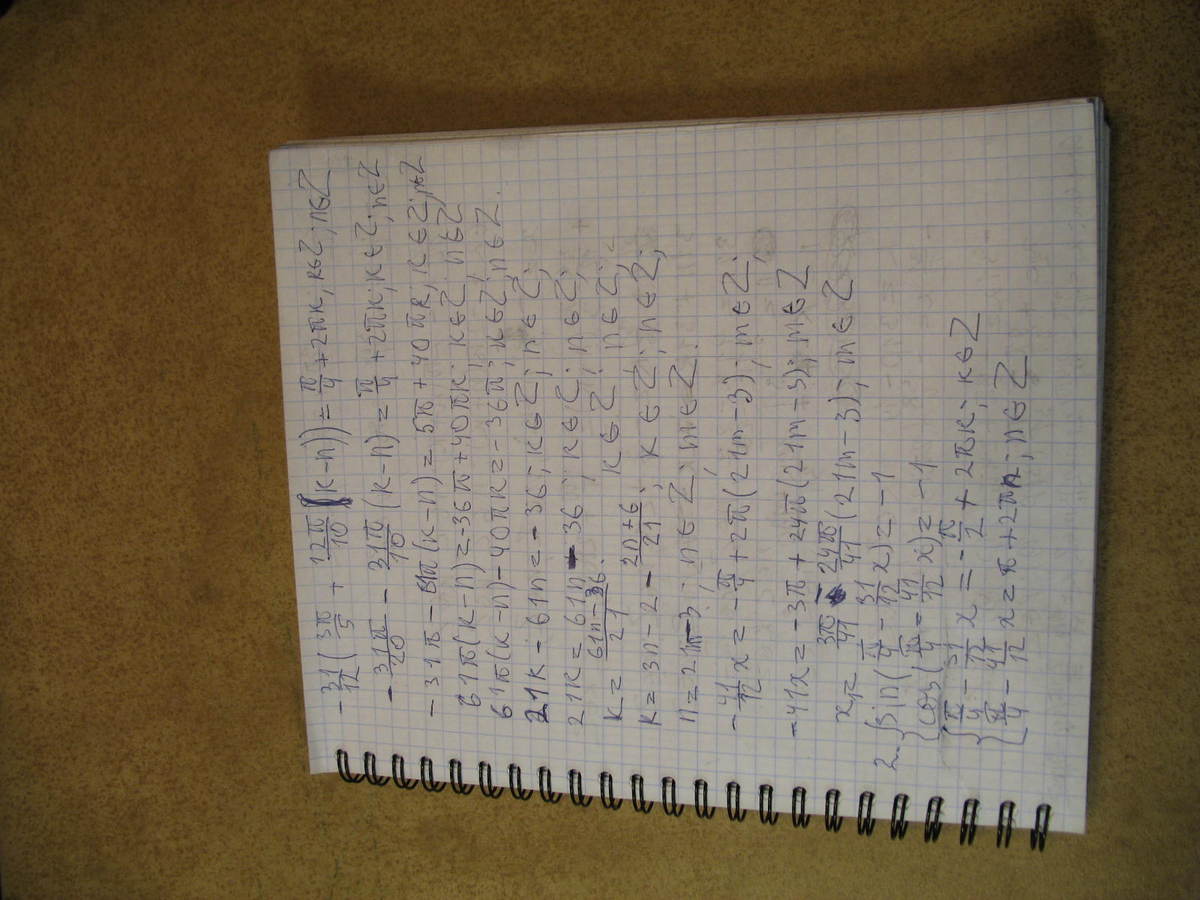 -31/12(3π/5 + 12π/10(k-n)) = π/4 + 2πk, k∈Z; n∈Z
-31π/20 - 31π/10(k-n) = π/4 + 2πk, k∈Z; n∈Z
-31π - (k-n) = 5π + 40πk, k∈Z; n∈Z
61π(k-n) = -36π + 40πk; k∈Z; n∈Z
61π(k-n) - 40πk = -36π; k∈Z; n∈Z.
21k - 61n = -36; k∈Z; n∈Z;
21k = 61n - 36; k∈Z; n∈Z;
k = 61n-36/21. k∈Z; n∈Z;
k = 3n - 2 - 2n+6/21; k∈Z; n∈Z;
n = 21m-3; n∈Z; m∈Z.
-41/12x = -π/4 + 2π(21m-3); m∈Z;
-41x = -3π + 24π(21m-3); m∈Z
x₁ = 3π/41 - 24π/41(21m-3); m∈Z
2. {sin(π/4 - 31/12x) = -1
{cos(π/4 - 41/12x) = -1
{π/4 - 31/12x = -π/2 + 2πk; k∈Z
{π/4 - 41/12x = π + 2πn; n∈Z